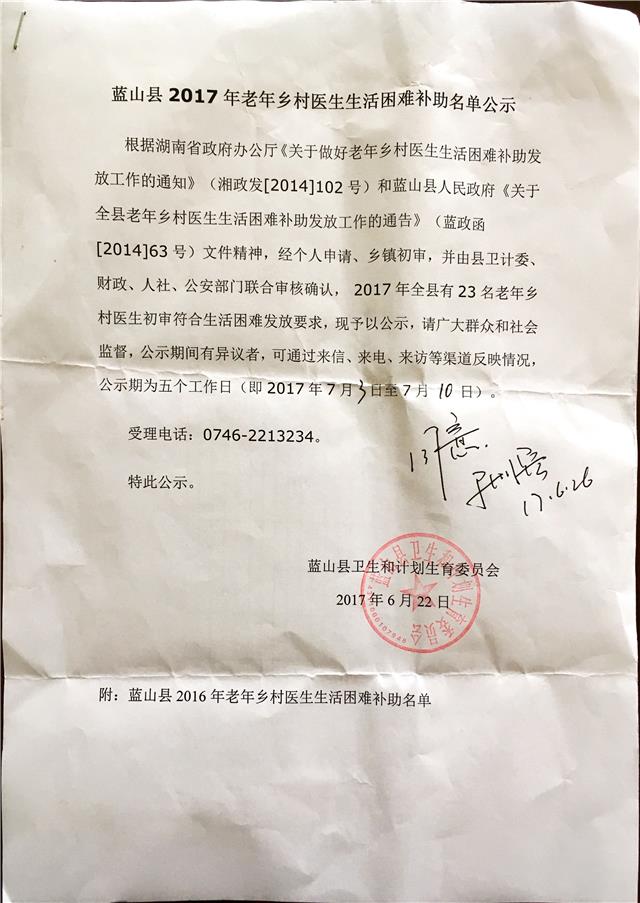 蓝山县 2017 年老年乡村医生生活困难补助名单公示
根据湖南省政府办公厅《关于做好老年乡村医生生活困难补助发
放工作的通知》（湘政发[2014]102 号）和蓝山县人民政府《关于
全县老年乡村医生生活困难补助发放工作的通告》（蓝政函
[2014]63 号）文件精神，经个人申请、乡镇初审，并由县卫计委、
财政、人社、公安部门联合审核确认， 2017 年全县有 23 名老年乡
村医生初审符合生活困难发放要求，现予以公示，请广大群众和社会
监督，公示期间有异议者，可通过来信、来电、来访等渠道反映情况，
公示期为五个工作日（即 2017 年 7 月 3 日至 7 月 10 日）。
受理电话：0746-2213234。
同意.
17.6.26
特此公示。
蓝山县卫生和计划生育委员会
2017 年 6 月 22 日
蓝山县卫生和计划生育委员会
附：蓝山县 2016 年老年乡村医生生活困难补助名单